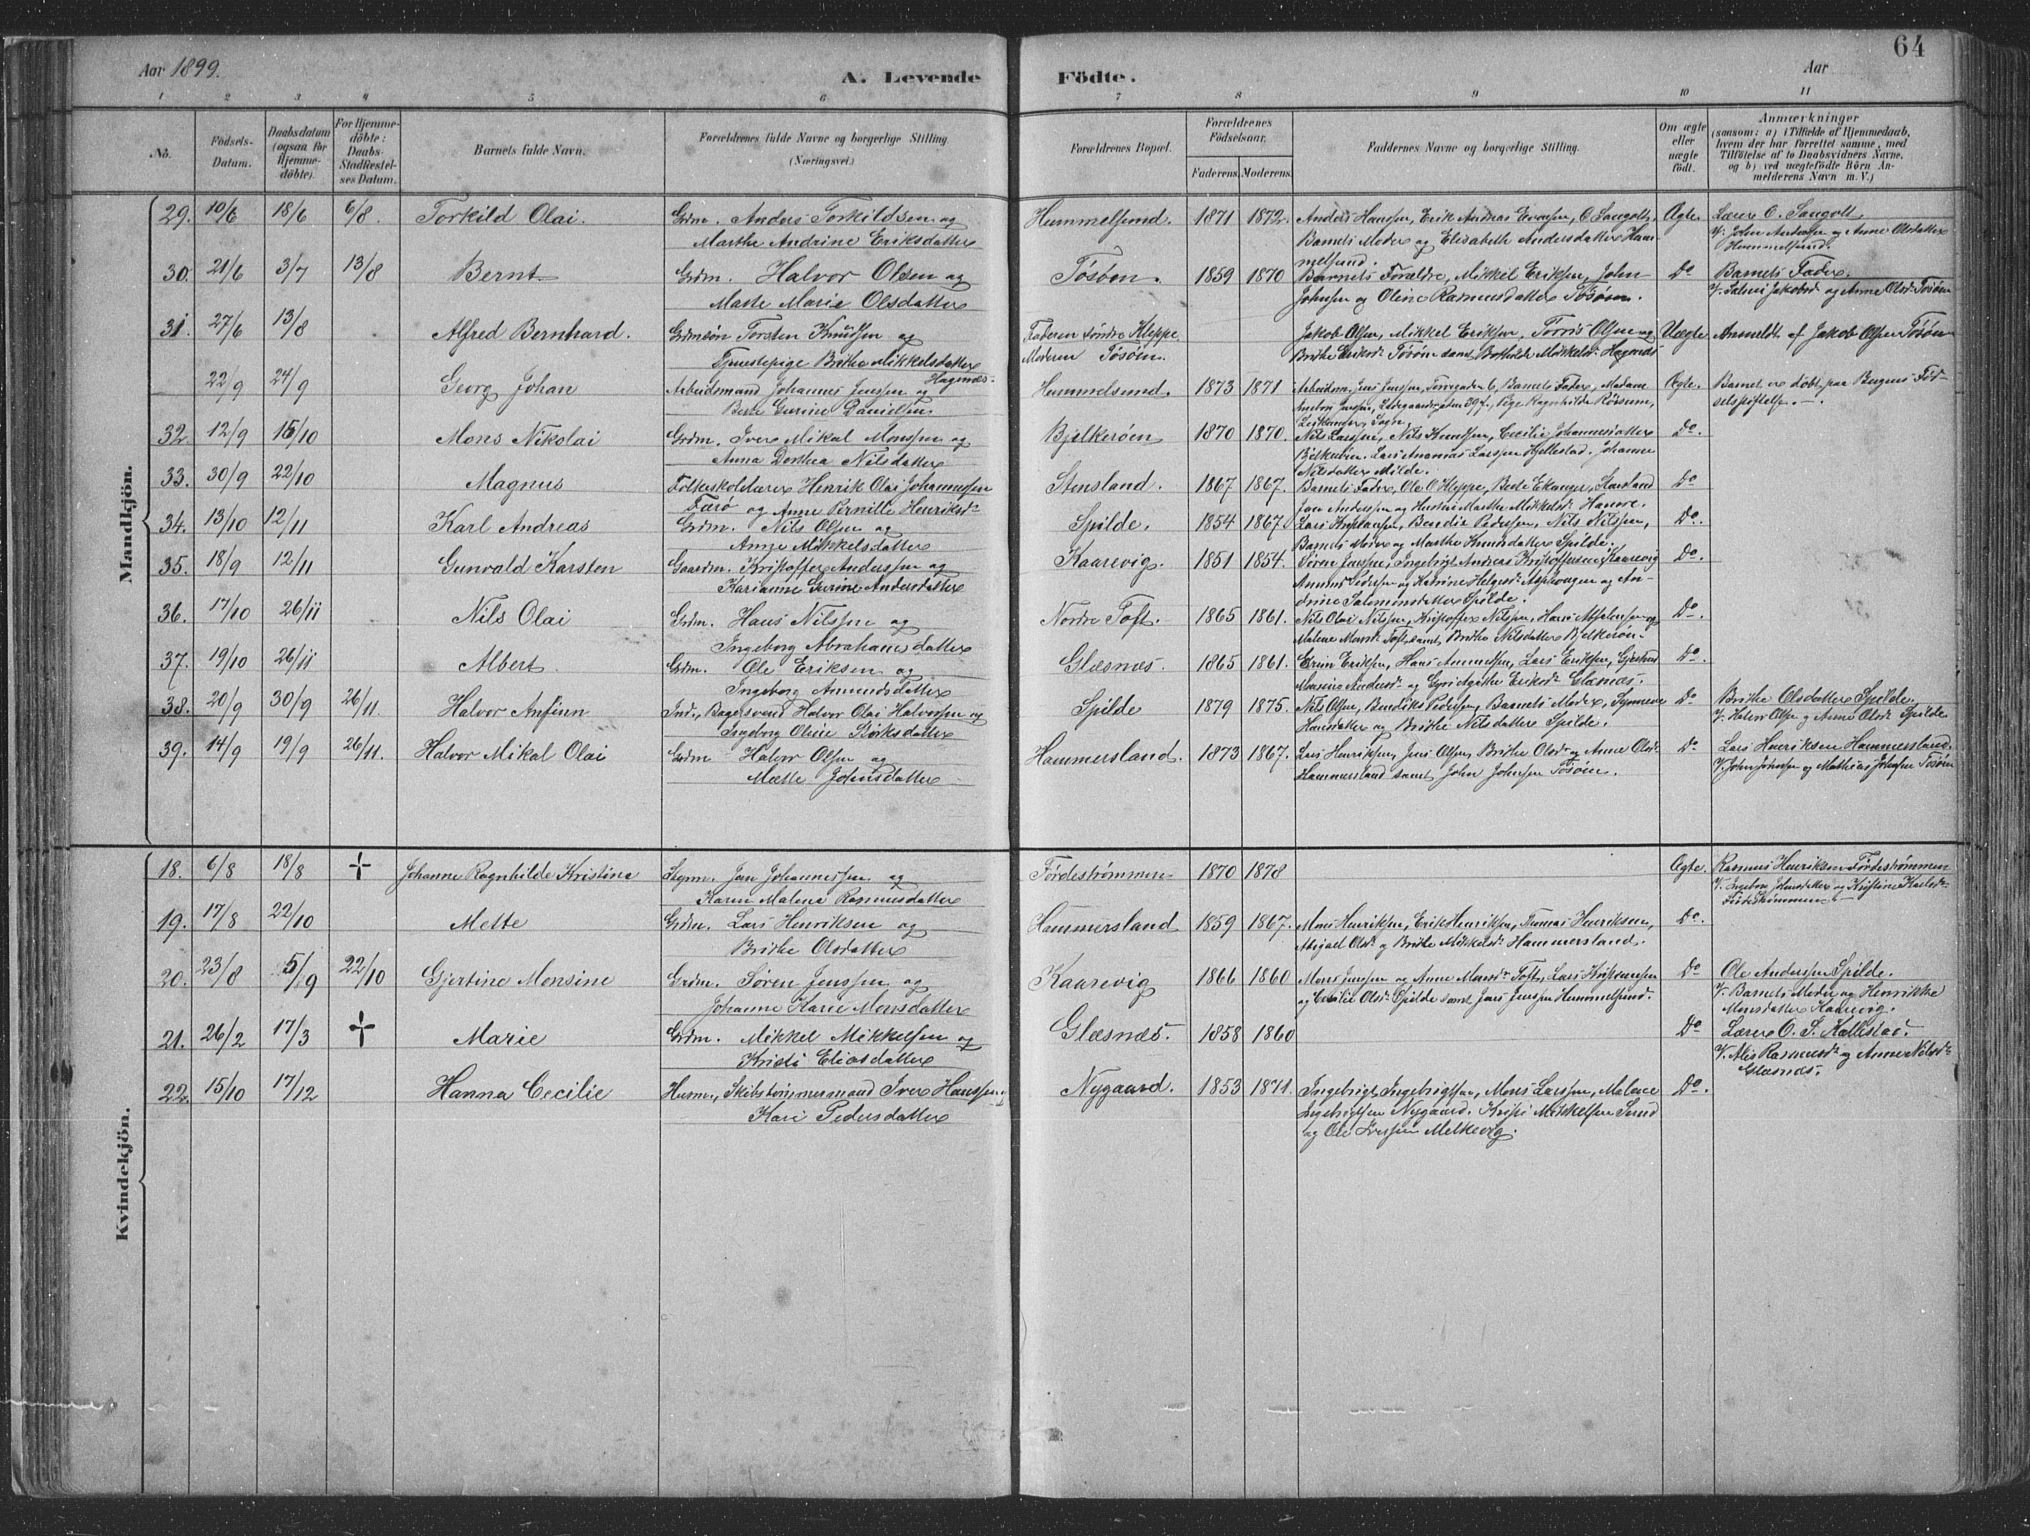 Aar 1899.
A. Levende Födte.
Aar
64
1 2 3 4 5 6 7 8 9 10 11
No.
Födsels-Datum.
Daabsdatum (ogsaa for Hjemme-döbte).
For Hjemme-döbte: Daabs-Stadfæstel-ses Datum.
Barnets fulde Navn.
Forældrenes fulde Navne og borgerlige Stilling (Næringsvei.)
Forældrenes Bopæl.
Forældrenes Födselsaar.
Faderens. Moderens.
Faddernes Navne og borgerlige Stilling.
Om ægte eller uægte födt.
Anmærkninger
(saasom: a) i Tilfælde af Hjemmedaab, hvem der har forrettet samme, med Tilföielse af to Daabsvidners Navne, og b) ved uægtefödte Börn An-melderens Navn m. V.)
Mandkjön.
29. 10/6 18/6 6/8. Torkild Olai Grdm. Anders Torkildsen og Hummelsund 1871 1872. Anders Hanssen, Erik Andreas Ersen, O. Sangolt, Ægte. Lærer O. Sangolt
Marthe Andrine Eriksdatter Barnets Moder og Elisabeth Andersdatter Hum-melsund. V. John Andersen og Anne Olsdatter Hummelsund.
30. 21/6 3/7 13/8 Bernt Grdm. Halvor Olsen og Tösöen. 1859 1870 Barnets Forældre, Mikkel Eriksen, John Do Barnets Fader.
Mette Marie Olsdatter Johnsen og Oline Rasmusdatter Tösöen. og Anne Olsd. Tösöen
31. 27/6 13/8 Alfred Bernhard. Grdmsön Torsten Knudsen og Faderen söndre Kleppe Jakob Olsen, Mikkel Eriksen, Torris Olsen og Uægte Anmeldt af Jakob Olsen Tösöen
Tjenestepige Brithe Mikkelsdatter Hagenæs. Moderen Tösöen. Brithe Eriksd. Tösöen samt Mikkelsd. Hagenæs
22/9 24/9 Georg Johan Arbeidsmand Johannes Jenssen og Hummelsund 1873 1871 Arbeidsm. Jens Jenssen, Barnets Fader, Madam Ægte. Barnet er döbt paa Bergens Föd-selsstiftelse.
Berte Gurine Danielsen Pige Ragnhilde
32. 12/9 15/10 Mons Nikolai Grdm. Iver Mikal Monsen og Bjelkeröen 1870 1870. Nils Larssen, Nils Knudsen, Cecilie Johannesdatter Do
Anna Dorthea Nilsdatter Bjelkeröen. Lars Larssen Hjellestad. Johanne Nilsdatter Milde.
33. 30/9 22/10 Magnus Folkeskolelærer Henrik Olai Johannessen Stensland. 1867 1867. Barnets Fader, Ole O. Kleppe, Berte Ekanger, Do
Færö og Anne Pernille Henriksd. Jan Anderssen og Marthe Mikkelsd.
34. 13/10 12/11 Karl Andreas Grdm. Nils Olsen og Spilde. 1854 1867. Lars Bendix Pedersen, Nils Nilssen, Do.
Anne Mikkelsdatter Barnets Moder og Marthe Spilde.
35. 18/9 12/11 Gunvald Karsten Gaardm. Kristoffer Anderssen og Kaarevig 1851 1854. Sören Jenssen, Ingebrigt Andreas Kristoffersen Kaarevig Do
Karianne Gurine Andersdatter Amund Pedersen og Katrine Helgesd. Asphaugen og An-drine Salomonsdatter Spilde.
36. 17/10 26/11 Nils Olai Grdm. Hans Nilssen og Nordre Toft. 1865 1861. Nils Olai Nilssen, Kristoffer Nilssen, og Do
Ingeborg Abrahamsdatter Malene Toft samt Brithe Nilsdatter Bjelkeröen.
37. 19/10 26/11 Albert. Grdm. Ole Eriksen og Glæsnæs. 1865 1861. Eriksen, Hans Amundsen, Lars Eriksen, Do
Ingeborg Amundsdatter Andersd. og Eriksd. Glæsnæs.
38. 20/9 30/9 26/11 Halvor Anfinn Ind., Bagersvend Halvor Olai Halvorsen og Spilde 1879 1875. Nils Olsen, Bendiks Pedersen, Barnets Moder, Synneve Do Brithe Olsdatter Spilde.
Ingeborg Oline Eriksdatter Hansdatter og Brithe Nilsdatter Spilde. V. Halvor Olsen og Anne Olsd. Spilde
39. 14/9 19/9 26/11. Halvor Mikal Olai Grdm Halvor Olsen og Hammersland. 1873 1867. Lars Henriksen, Jens Olsen, Brithe Olsd. og Anne Olsd. Do Lars Henriksen Hammersland.
Mette Johnsdatter Hammersland samt John Johnsen Tösöen. V. John Johnsen og Mathias Johnsen Tösöen
Kvindekjön.
18. 6/8 18/8 † Johanne Ragnhilde Kristina Jan Johannessen og Fördeströmmen 1870 1878 Ægte. Rasmus Henriksen Fördeströmmen
Karen Malena Rasmusdatter V. Ingeborg Johnsdatter og Kristine Karlsd. Fördeströmmen
19. 17/8 22/10 Mette Grdm. Lars Henriksen og Hammersland 1859 1867. Mons Henriksen, Erik Henriksen, Thomas Henriksen, Do
Brithe Olsdatter Abigael Olsd. og Brithe Mikkelsd. Hammersland.
20. 23/8 5/9 22/10 Gjertine Monsine Grdm. Sören Jenssen og Kaarevig 1866 1860 Mons Jenssen og Anne Monsd. Toft, Lars Do Ole Anderssen Spilde.
Johanne Karie Monsdatter og Cecilie Olsd. Spilde samt Jens Jenssen Hummelsund. V. Barnets Moder og Henrikke Monsdatter Kaarevig.
21. 26/2 17/3 † Marie Grdm. Mikkel Mikkelsen og Glæsnæs. 1858 1860 Do Lærer O. S. Kallestad.
Kristi Eliasdatter V. Rasmusd. og Anne Nilsd. Glæsnæs.
22. 15/10 17/12 Hanna Cecilie Husm., Skibstömmermand Iver Hanssen Nygaard. 1853 1871. Ingebrigt Ingebrigtsen, Mons Larssen, Malene Do.
Kari Pedersdatter Ingebrigtsen Nygaard. Kristi Mikkelsen Sund
og Ole Iverssen Melkevig.